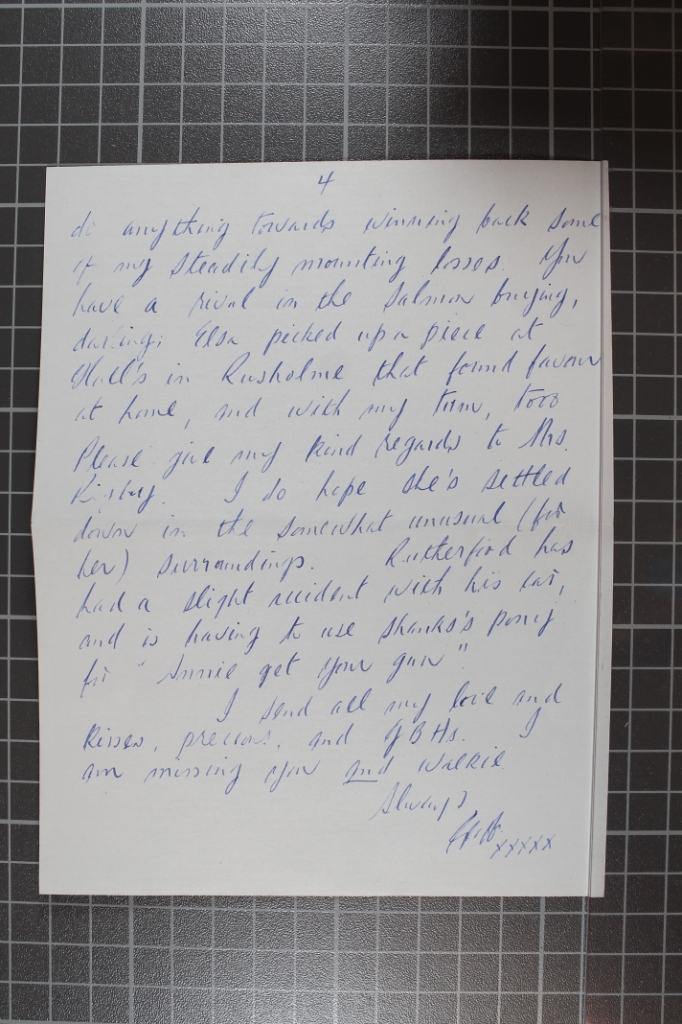 4
do anything towards winning back some
of my steadily mounting losses. You
have a rival in the salmon buying,
darling; Elsa picked up a piece at
in Rusholme that found favour
at home, and with my tum, too
Please give my kind regards to Mrs.
I do hope she's settled
down in the somewhat unusual (for
her) surroundings. Rutherford has
had a slight accident with his car,
and is having to use shanks's pony
for "Annie get your gun".
I send all my love and
kisses, precious, and GBHs. I
am missing you and
Always
xxxxx